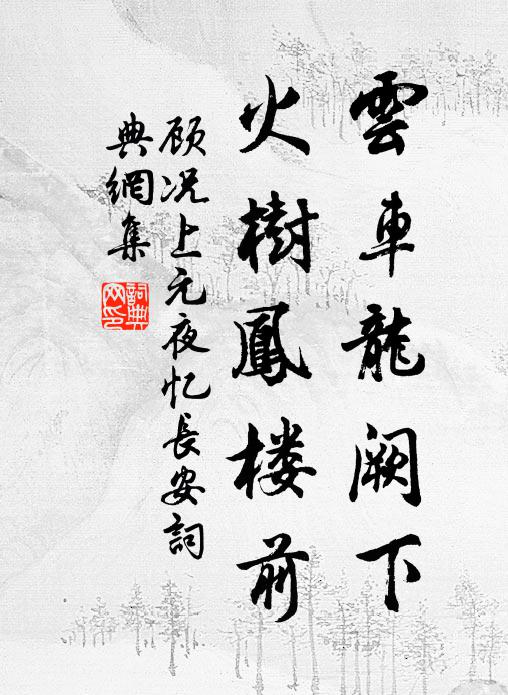 雲車龍闕下
火樹鳳楼前
顾况上元夜忆長安詞
典網集
詞典
网印